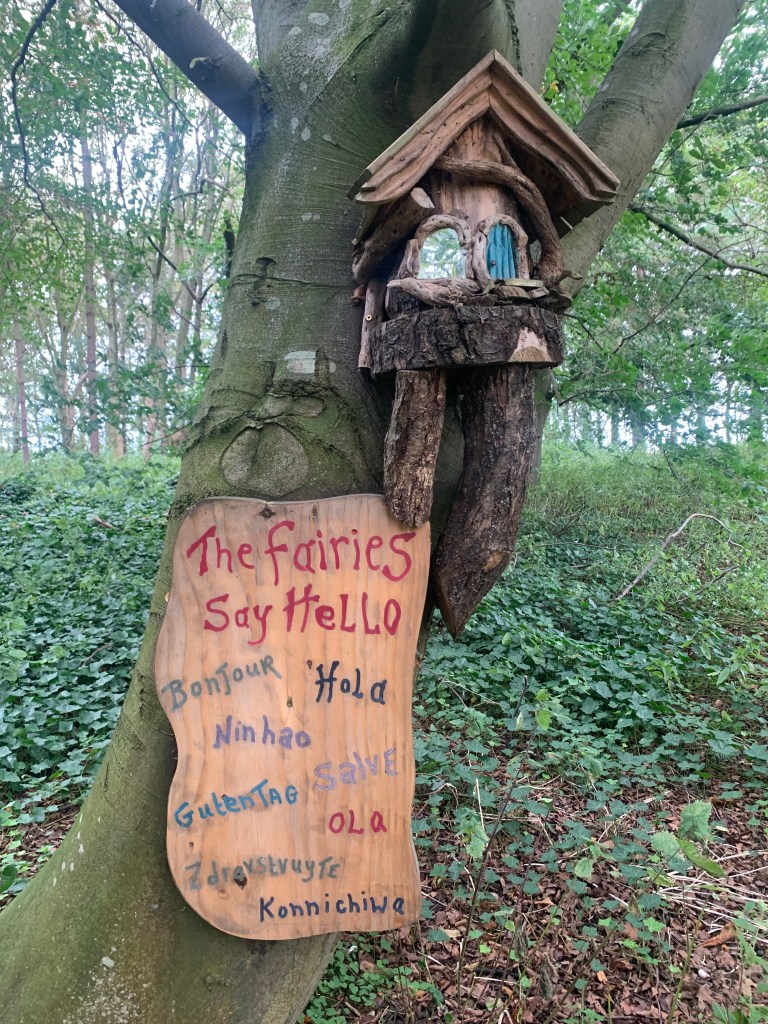 The Fairies
Say HeLLO
BonJouR
'Hola
Ninhao
SalvE
GutenTAG
OLa
Zdravstvuyte
Konnichiwa